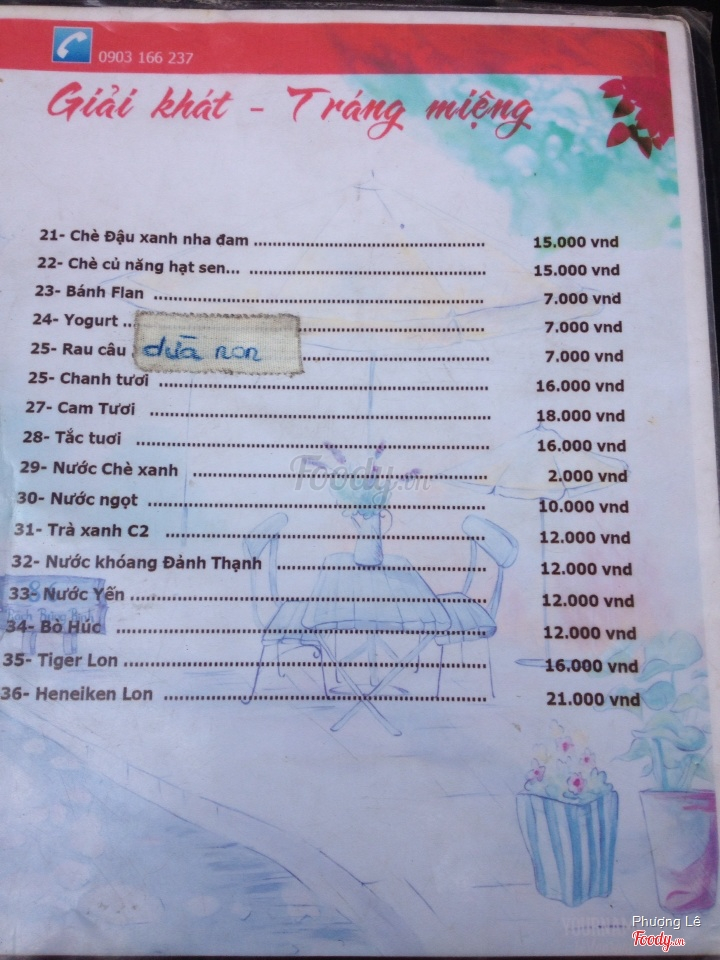 0903 166 237
Giải khát - Tráng miệng
21- Chè Đậu xanh nha đam 15.000 vnd
22- Chè củ năng hạt sen... 15.000 vnd
23- Bánh Flan 7.000 vnd
24- Yogurt 7.000 vnd
25- Rau câu dừa non 7.000 vnd
25- Chanh tươi 16.000 vnd
27- Cam Tươi 18.000 vnd
28- Tắc tươi 16.000 vnd
29- Nước Chè xanh 2.000 vnd
30- Nước ngọt 10.000 vnd
31- Trà xanh C2 12.000 vnd
32- Nước khóang Đảnh Thạnh 12.000 vnd
33- Nước Yến 12.000 vnd
34- Bò Húc 12.000 vnd
35- Tiger Lon 16.000 vnd
36- Heneiken Lon 21.000 vnd
Foody.vn
Phượng Lê
Foody.vn